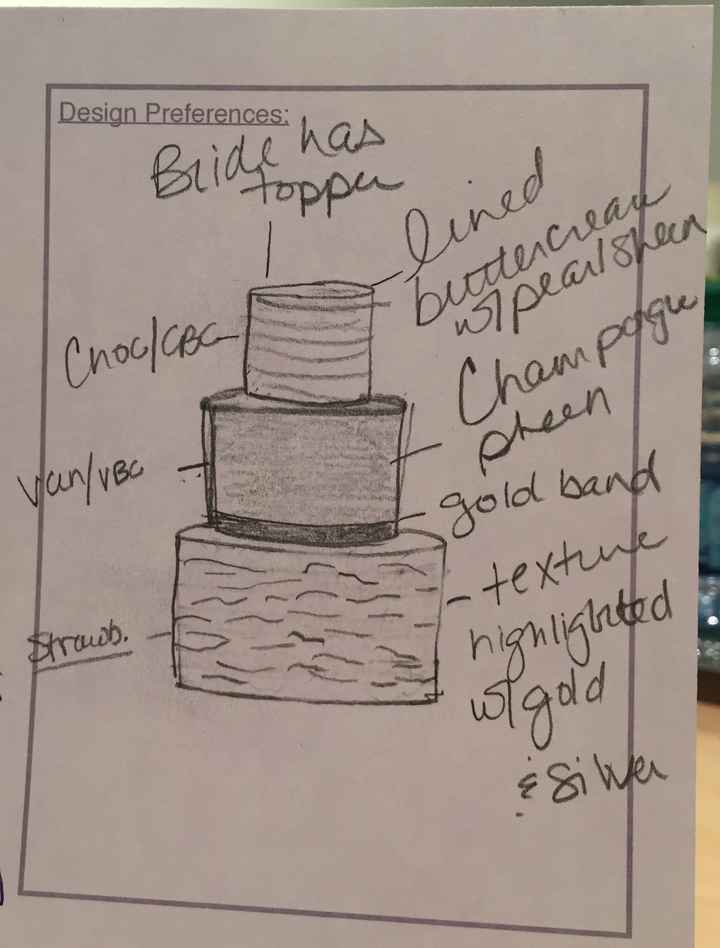 Design Preferences:
Bride has
topper
lined
buttercream
w/pearl sheen
Choc/CBC
Champagne
sheen
Van/VBC
gold band
texture
highlighted
w/gold
& Silver
Strawb.